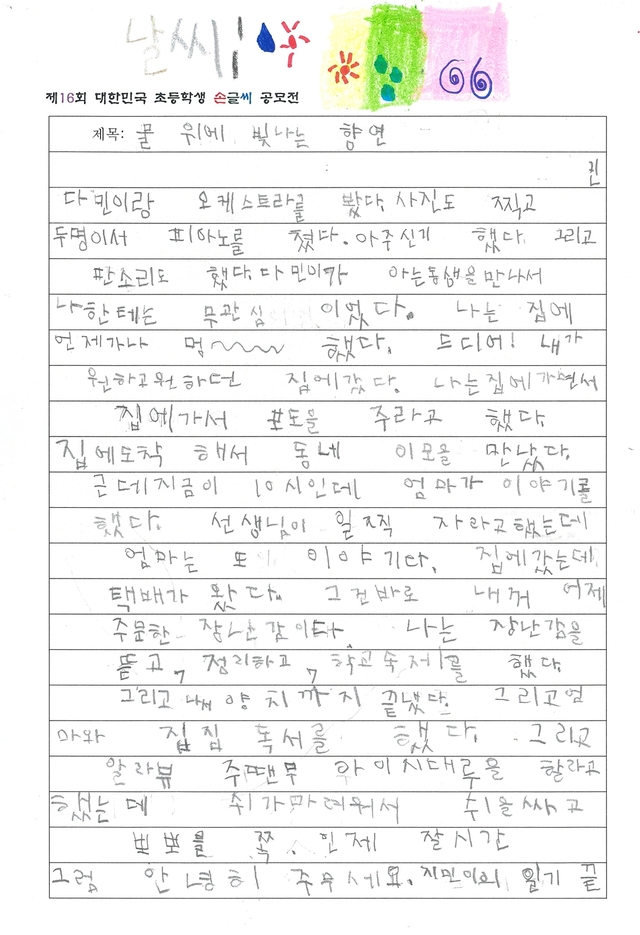 날씨!
제16회 대한민국 초등학생 손글씨 공모전
제목: 물 위에 빛나는 향연
다민이랑 오케스트라를 봤다. 사진도 찍고
두명이서 피아노를 쳤다. 아주신기 했다 그리고
판소리도 했다. 다민이가 아는동생을 만나서
나한테는 무관심 이었다. 나는 집에
언제가나 멍~ 했다. 드디어! 내가
원하고원하던 집에갔다. 나는집에가면서
집에가서 포도을 주라고 했다.
집에도착 해서 동네 이모을 만났다.
근데지금이 10시인데 엄마가 이야기를
했다. 선생님이 일찍 자라고했는데
엄마는 또 이야기다. 집에갔는데
택배가 왔다. 그건바로 내꺼 어제
주문한 장난감이다 나는 장난감을
뜯고, 정리하고, 학교숙제를 했다.
그리고 양치까지 끝냈다. 그리고엄
마와 집 독서를 했다. 그리고
알라뷰 주땐무 아이시대루을 할라고
했는데 쉬가마려워서 쉬을싸고
뽀뽀를 쪽. 인제 잘시간
그럼 안녕히 주무세요. 지민이의 일기 끝